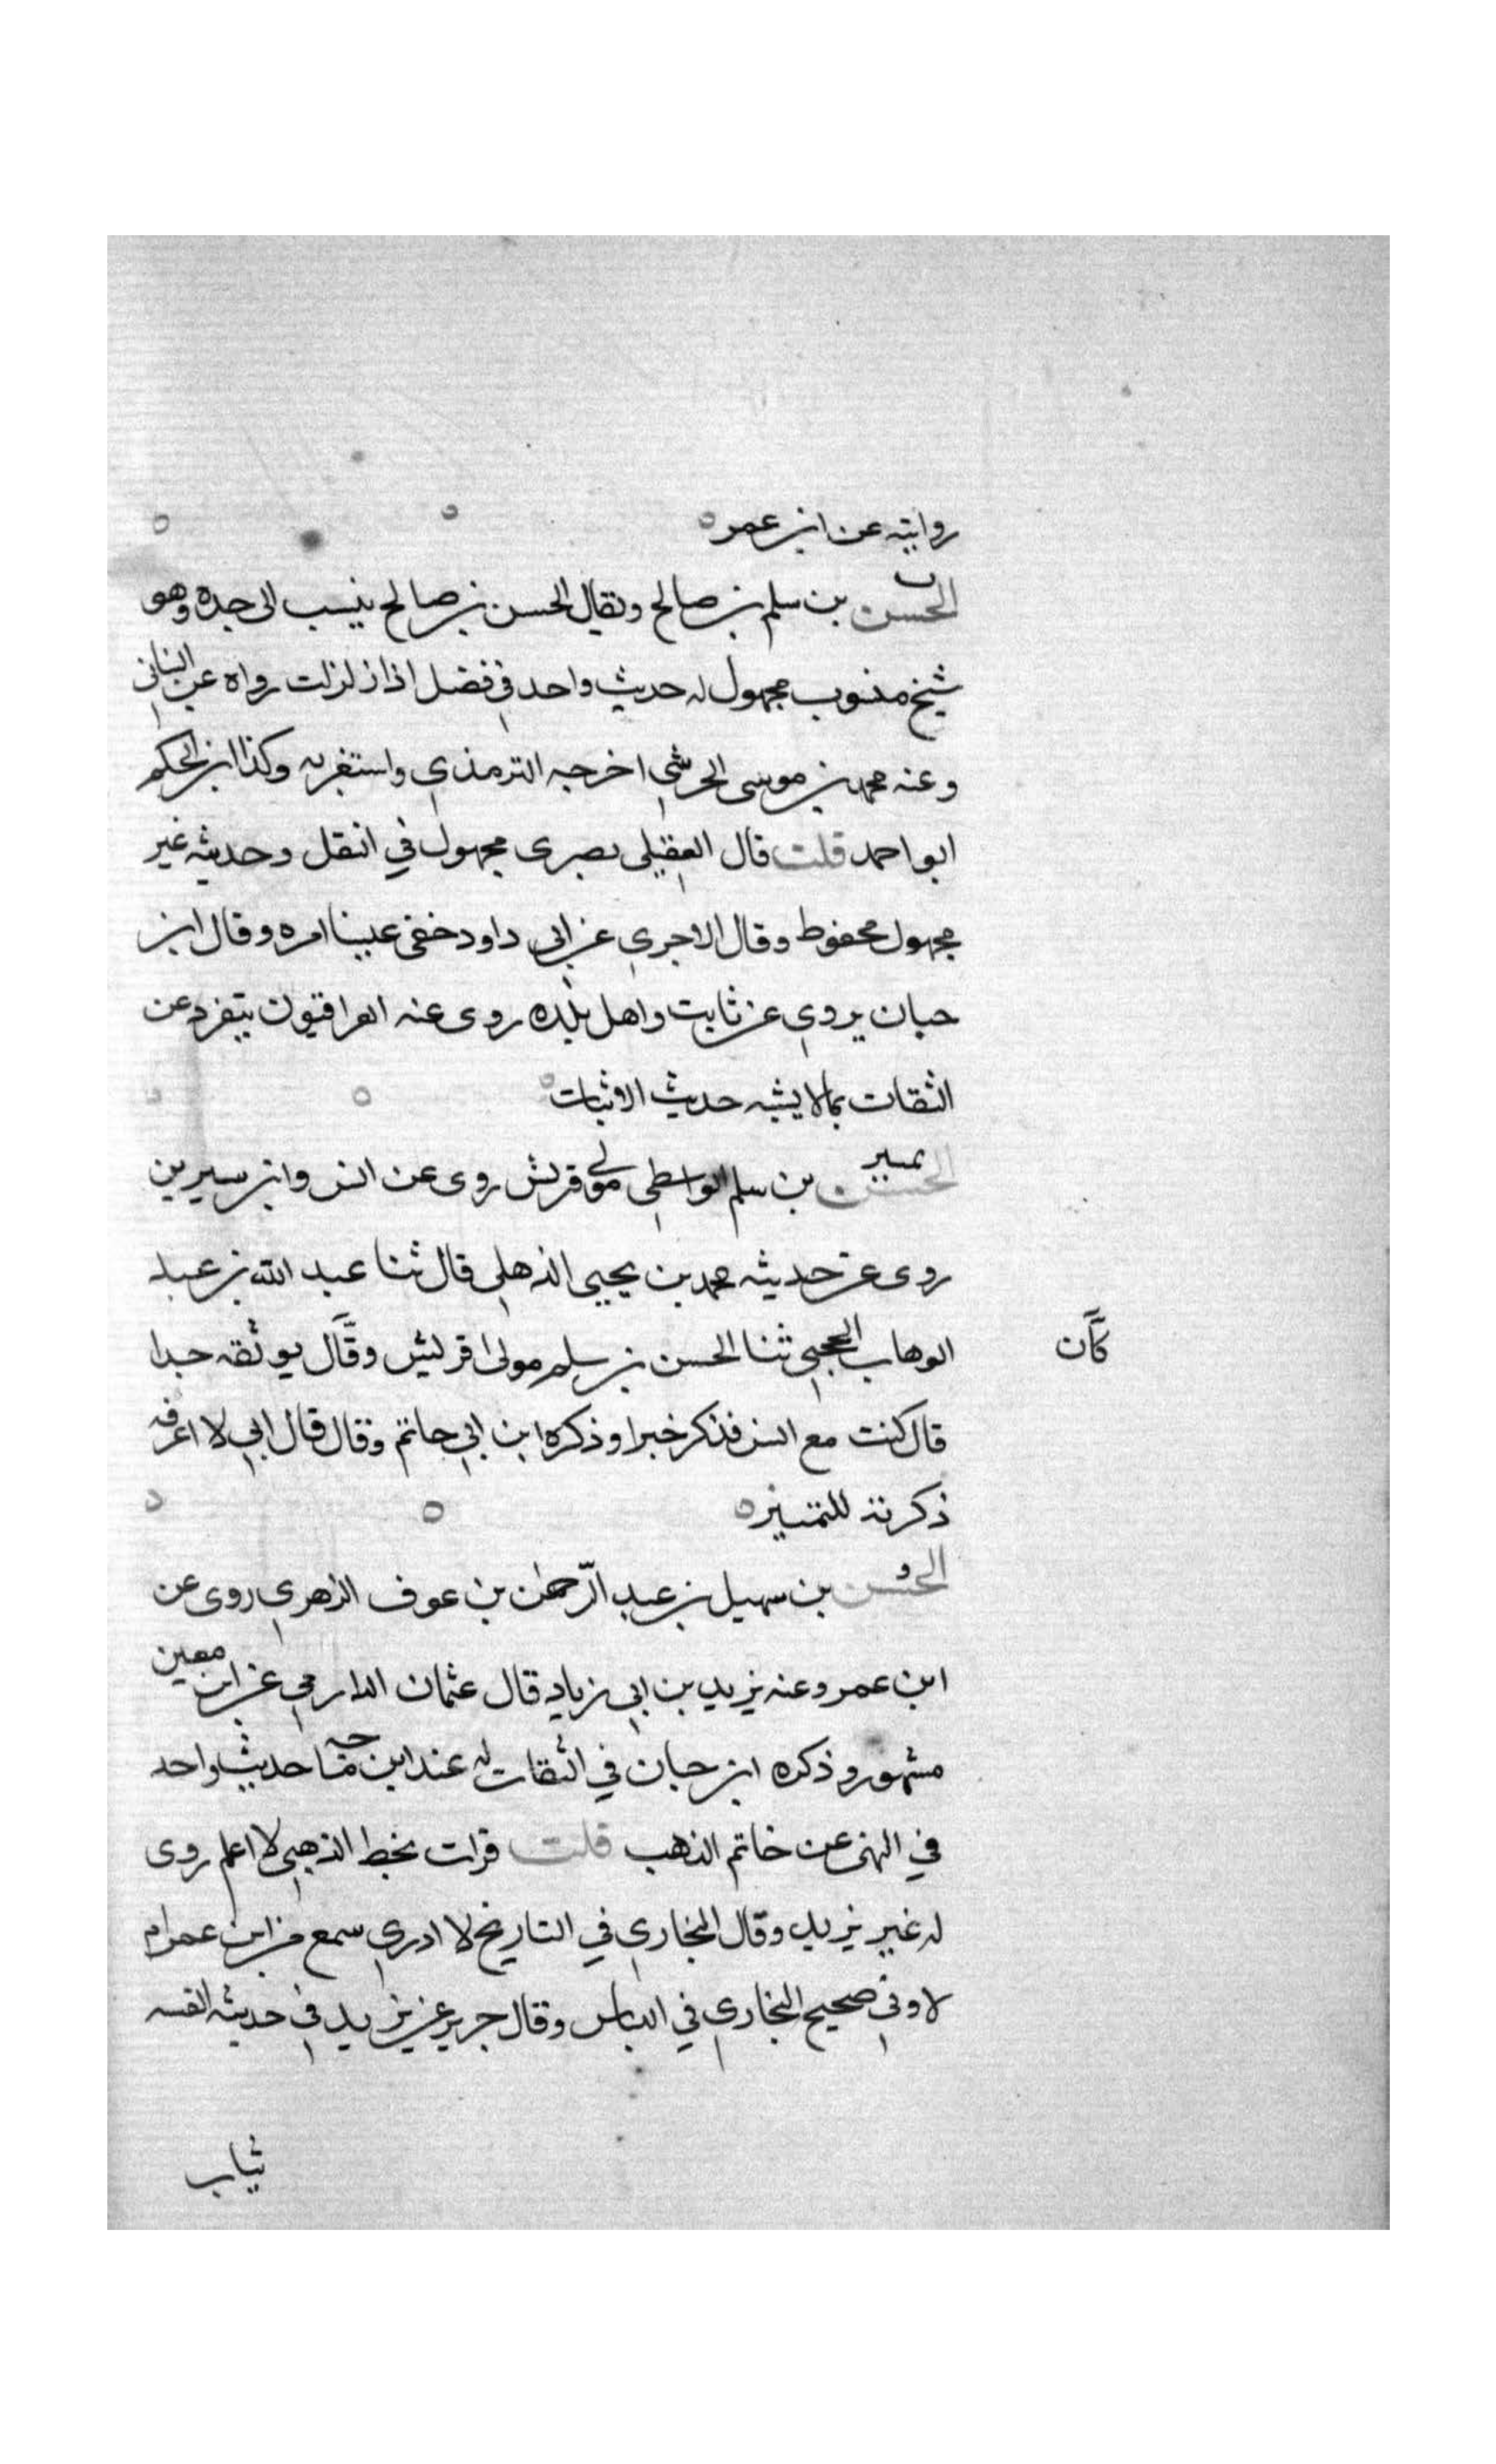 روايته عن ابن عمر ه
ت
الحسن بن سلم بن صالح ويقال الحسن بن صالح ينسب الى جده وهو
شيخ منسوب مجهول له حديث واحد في فضل اذا زلزلت رواه عن البناني
وعنه محمد بن موسى الحرشي اخرجه الترمذي واستغربه وكذا ابن الحكم
ابو احمد قلت قال العقيلي بصرى مجهول في النقل وحديثه غير
مجهول محفوظ وقال الاجري عن ابي داود خفى علينا امره وقال ابن
حبان يروي عن ثابت واهل بلده روى عنه العراقيون يتفرد عن
الثقات بما لا يشبه حديث الاثبات ه
تمييز
الحسن بن سلم الواسطي مولى قريش روى عن انس وابن سيرين
روى عن حديثه محمد بن يحيى الذهلي قال ثنا عبد الله بن عبد
الوهاب الحجبي ثنا الحسن بن سلم مولى قريش وقال يوثقه جدا
كان
قال كنت مع انس فذكر خبرا وذكره ابن ابي حاتم وقال قال ابي لا اعرفه
ذكرته للتمييز ه
ق
الحسن بن سهيل بن عبد الرّحمٰن بن عوف الزهري روى عن
ابن عمر وعنه يزيد بن ابي زياد قال عثمان الدارمي عن ابن معين
مشهور وذكره ابن حبان في الثقات له عند ابن ماجه حديث واحد
في النهى عن خاتم الذهب قلت قرات بخط الذهبي لا اعلم روى
له غير يزيد وقال البخاري في التاريخ لا ادري سمع من ابن عمر ام
لا وفي صحيح البخاري في اللباس وقال جرير عن يزيد في حديثه القسيه
ثياب